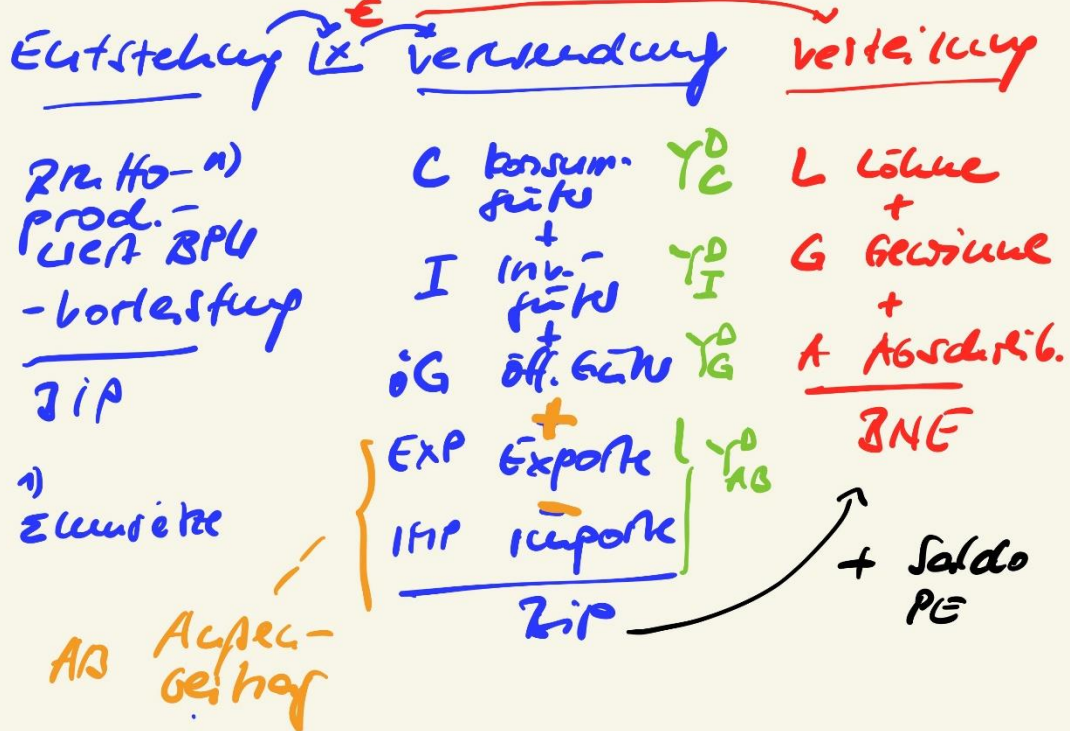 €
Entstehung LX Verwendung Verteilung
Brutto- 1)
prod.-
wert BPW
- Vorleistung
BIP
1)
Σ Umsätze
C Konsum-
güter
+
I Inv.-
güter
+
öG öff. Güter
+
EXP Exporte
-
IMP Importe
BIP
Y D C
Y D I
Y D G
Y D AB
AB Außen-
beitrag
L Löhne
+
G Gewinne
+
A Abschreib.
BNE
+ Saldo
PE